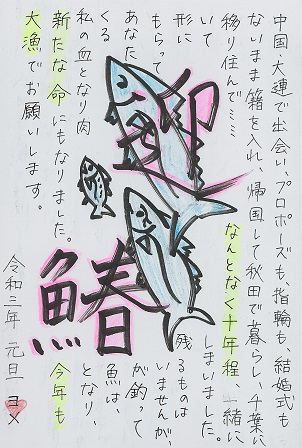 中国・大連で出会い、プロポーズも、指輪も、結婚式も
ないまま籍を入れ、帰国して秋田で暮らし、千葉に
移り住んで……なんとなく十年程一緒に
いてしまいました。
形に残るものは
もらっていませんが
あなたが釣って
くる魚は、
私の血となり肉となり、
新たな命にもなりました。今年も
大漁でお願いします。
迎
鰆
令和三年 元旦 ヨメ